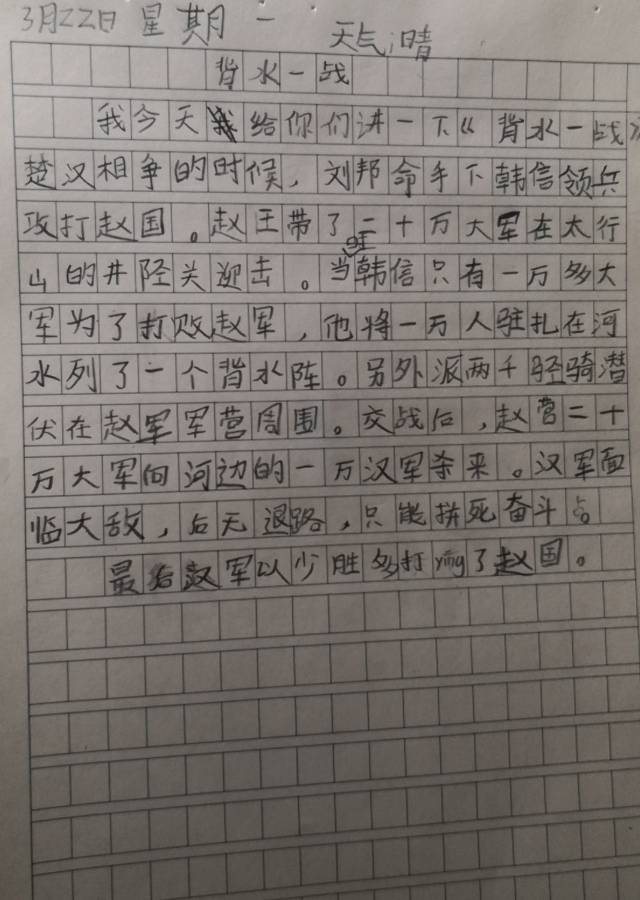 3月22日 星期一 天气:晴
背水一战
我今天给你们讲一下《背水一战》
楚汉相争的时候，刘邦命手下韩信领兵
攻打赵国。赵王带了二十万大军在太行
山的井陉关迎击。当韩信只有一万多大
军为了打败赵军，他将一万人驻扎在河
水列了一个背水阵。另外派两千轻骑潜
伏在赵军军营周围。交战后，赵营二十
万大军向河边的一万汉军杀来。汉军面
临大敌，后无退路，只能拼死奋斗。
最后赵军以少胜多打yíng了赵国。